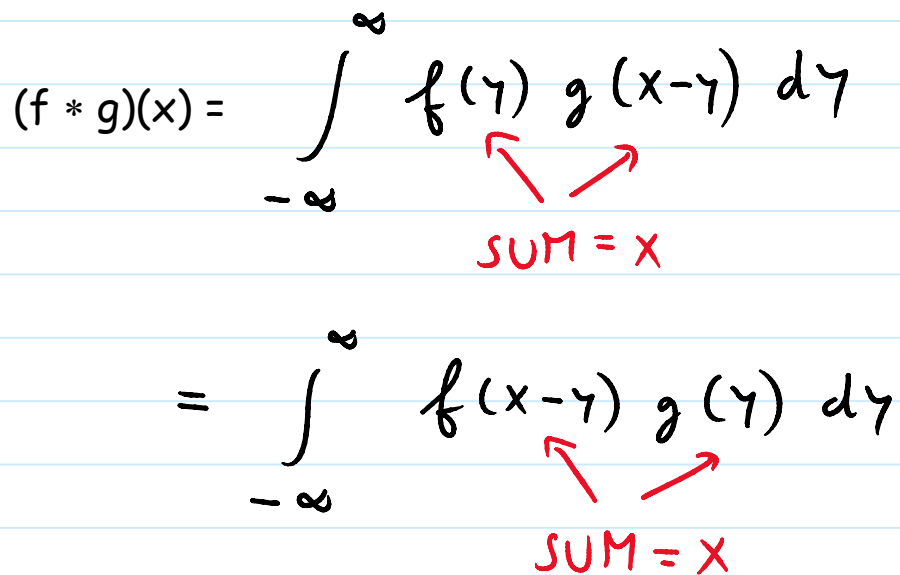 (f * g)(x) = ∫_{-∞}^{∞} f(y) g(x-y) dy
SUM = X
= ∫_{-∞}^{∞} f(x-y) g(y) dy
SUM = X